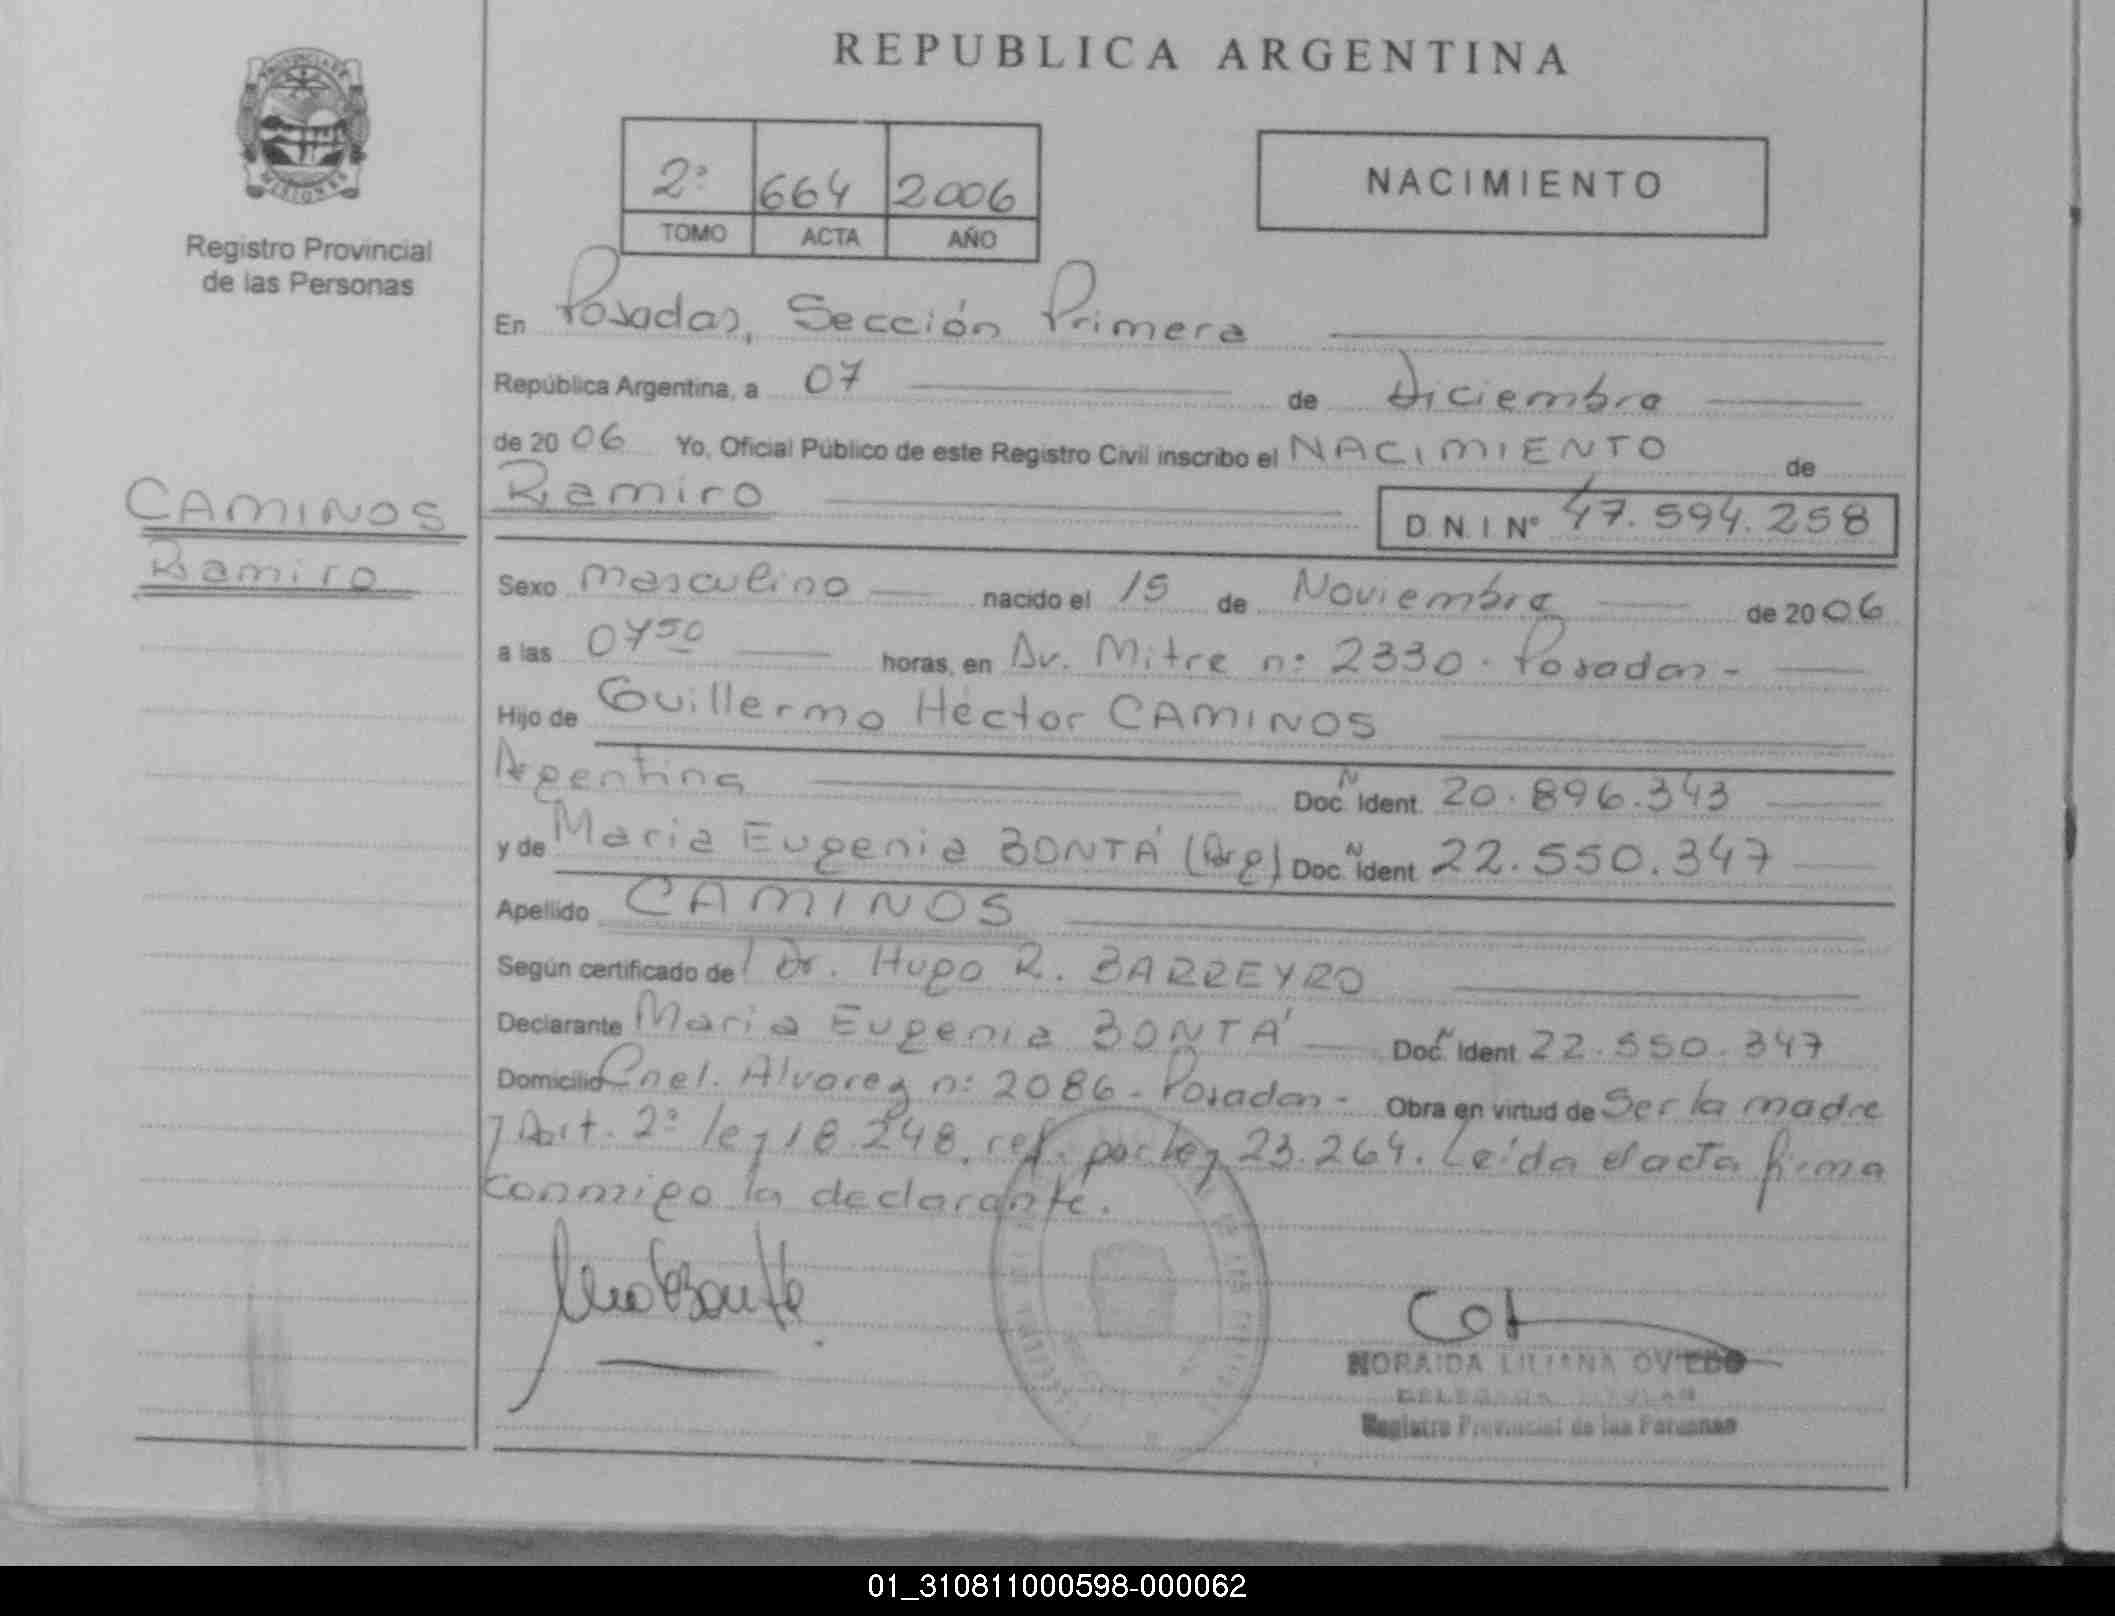 REPUBLICA ARGENTINA
PROVINCIA DE
MISIONES
Registro Provincial
de las Personas
2º 664 2006
TOMO ACTA AÑO
NACIMIENTO
En Posadas, Sección Primera
República Argentina, a 07 de Diciembre
de 2006 Yo, Oficial Público de este Registro Civil inscribo el NACIMIENTO de
CAMINOS
Ramiro
Ramiro D.N.I. Nº 47.594.258
Sexo Masculino nacido el 15 de Noviembre de 2006
a las 0750 horas, en Av. Mitre nº 2330 - Posadas -
Hijo de Guillermo Héctor CAMINOS
Argentina Doc. Nº Ident. 20.896.343
y de Maria Eugenia BONTÁ (Arg) Doc. Nº Ident. 22.550.347
Apellido CAMINOS
Según certificado de Dr. Hugo R. BARREYRO
Declarante Maria Eugenia BONTÁ Doc. Nº Ident. 22.550.347
Domicilio Cnel. Alvarez nº 2086 - Posadas - Obra en virtud de Ser la madre
y Art. 2º ley 18.248, ref. por ley 23.264. Leída el acta firma
conmigo la declarante.
NORAIDA LILIANA OVIEDO
DELEGADA TITULAR
Registro Provincial de las Personas
01_310811000598-000062